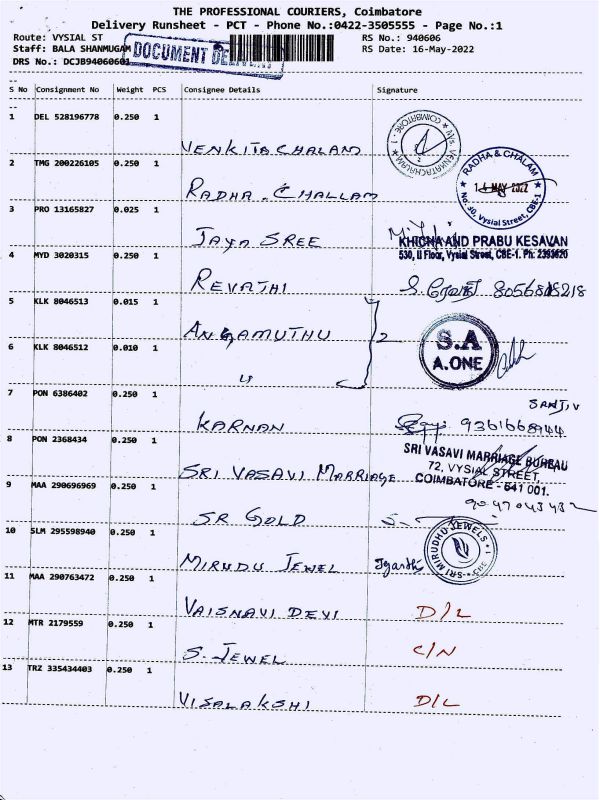 THE PROFESSIONAL COURIERS, Coimbatore
Delivery Runsheet - PCT - Phone No.:0422-3505555 - Page No.:1
Route: VYSIAL ST
RS No.: 940606
Staff: BALA SHANMUGAM
RS Date: 16-May-2022
DRS No.: DCJB94060601
DOCUMENT
S No Consignment No Weight PCS Consignee Details Signature
1 DEL 528196778 0.250 1
VENKITACHALAM
COIMBATORE - 1
2 TMG 200226105 0.250 1
RADHA. CHALLAM
RADHA & CHALAM
MAY 2022
No. 30, Vysial Street, CBE-1
3 PRO 13165827 0.025 1
JAYA SREE
AND PRABU KESAVAN
530, II Floor, Vysial Street, CBE-1. Ph: 2393620
4 MYD 3020315 0.250 1
REVATHI
5 KLK 8046513 0.015 1
ANGAMUTHU
2
S.A
A.ONE
6 KLK 8046512 0.010 1
〃
7 PON 6386402 0.250 1
SANJIV
KARNAN
9361668944
8 PON 2368434 0.250 1
SRI VASAVI MARRIAGE
SRI VASAVI MARRIAGE BUREAU
72, VYSIAL STREET,
COIMBATORE - 641 001.
9 MAA 290696969 0.250 1
SR GOLD
10 SLM 295598940 0.250 1
MIRUDU JEWEL
SRI MIRUDHU JEWELS
11 MAA 290763472 0.250 1
VAISNAVI DEVI D/L
12 MTR 2179559 0.250 1
S. JEWEL C/N
13 TRZ 335434403 0.250 1
VISALAKSHI D/L